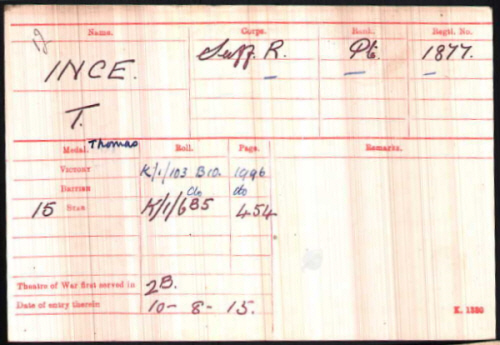 Name. Corps. Rank. Regtl. No.
INCE. Suff. R. Pte. 1877.
T.
Thomas
Medal. Roll. Page. Remarks.
Victory K/1/103 B10. 1996
British do do
15 Star K/1/6B5 454
Theatre of War first served in 2B.
Date of entry therein 10-8-15.
K. 1380